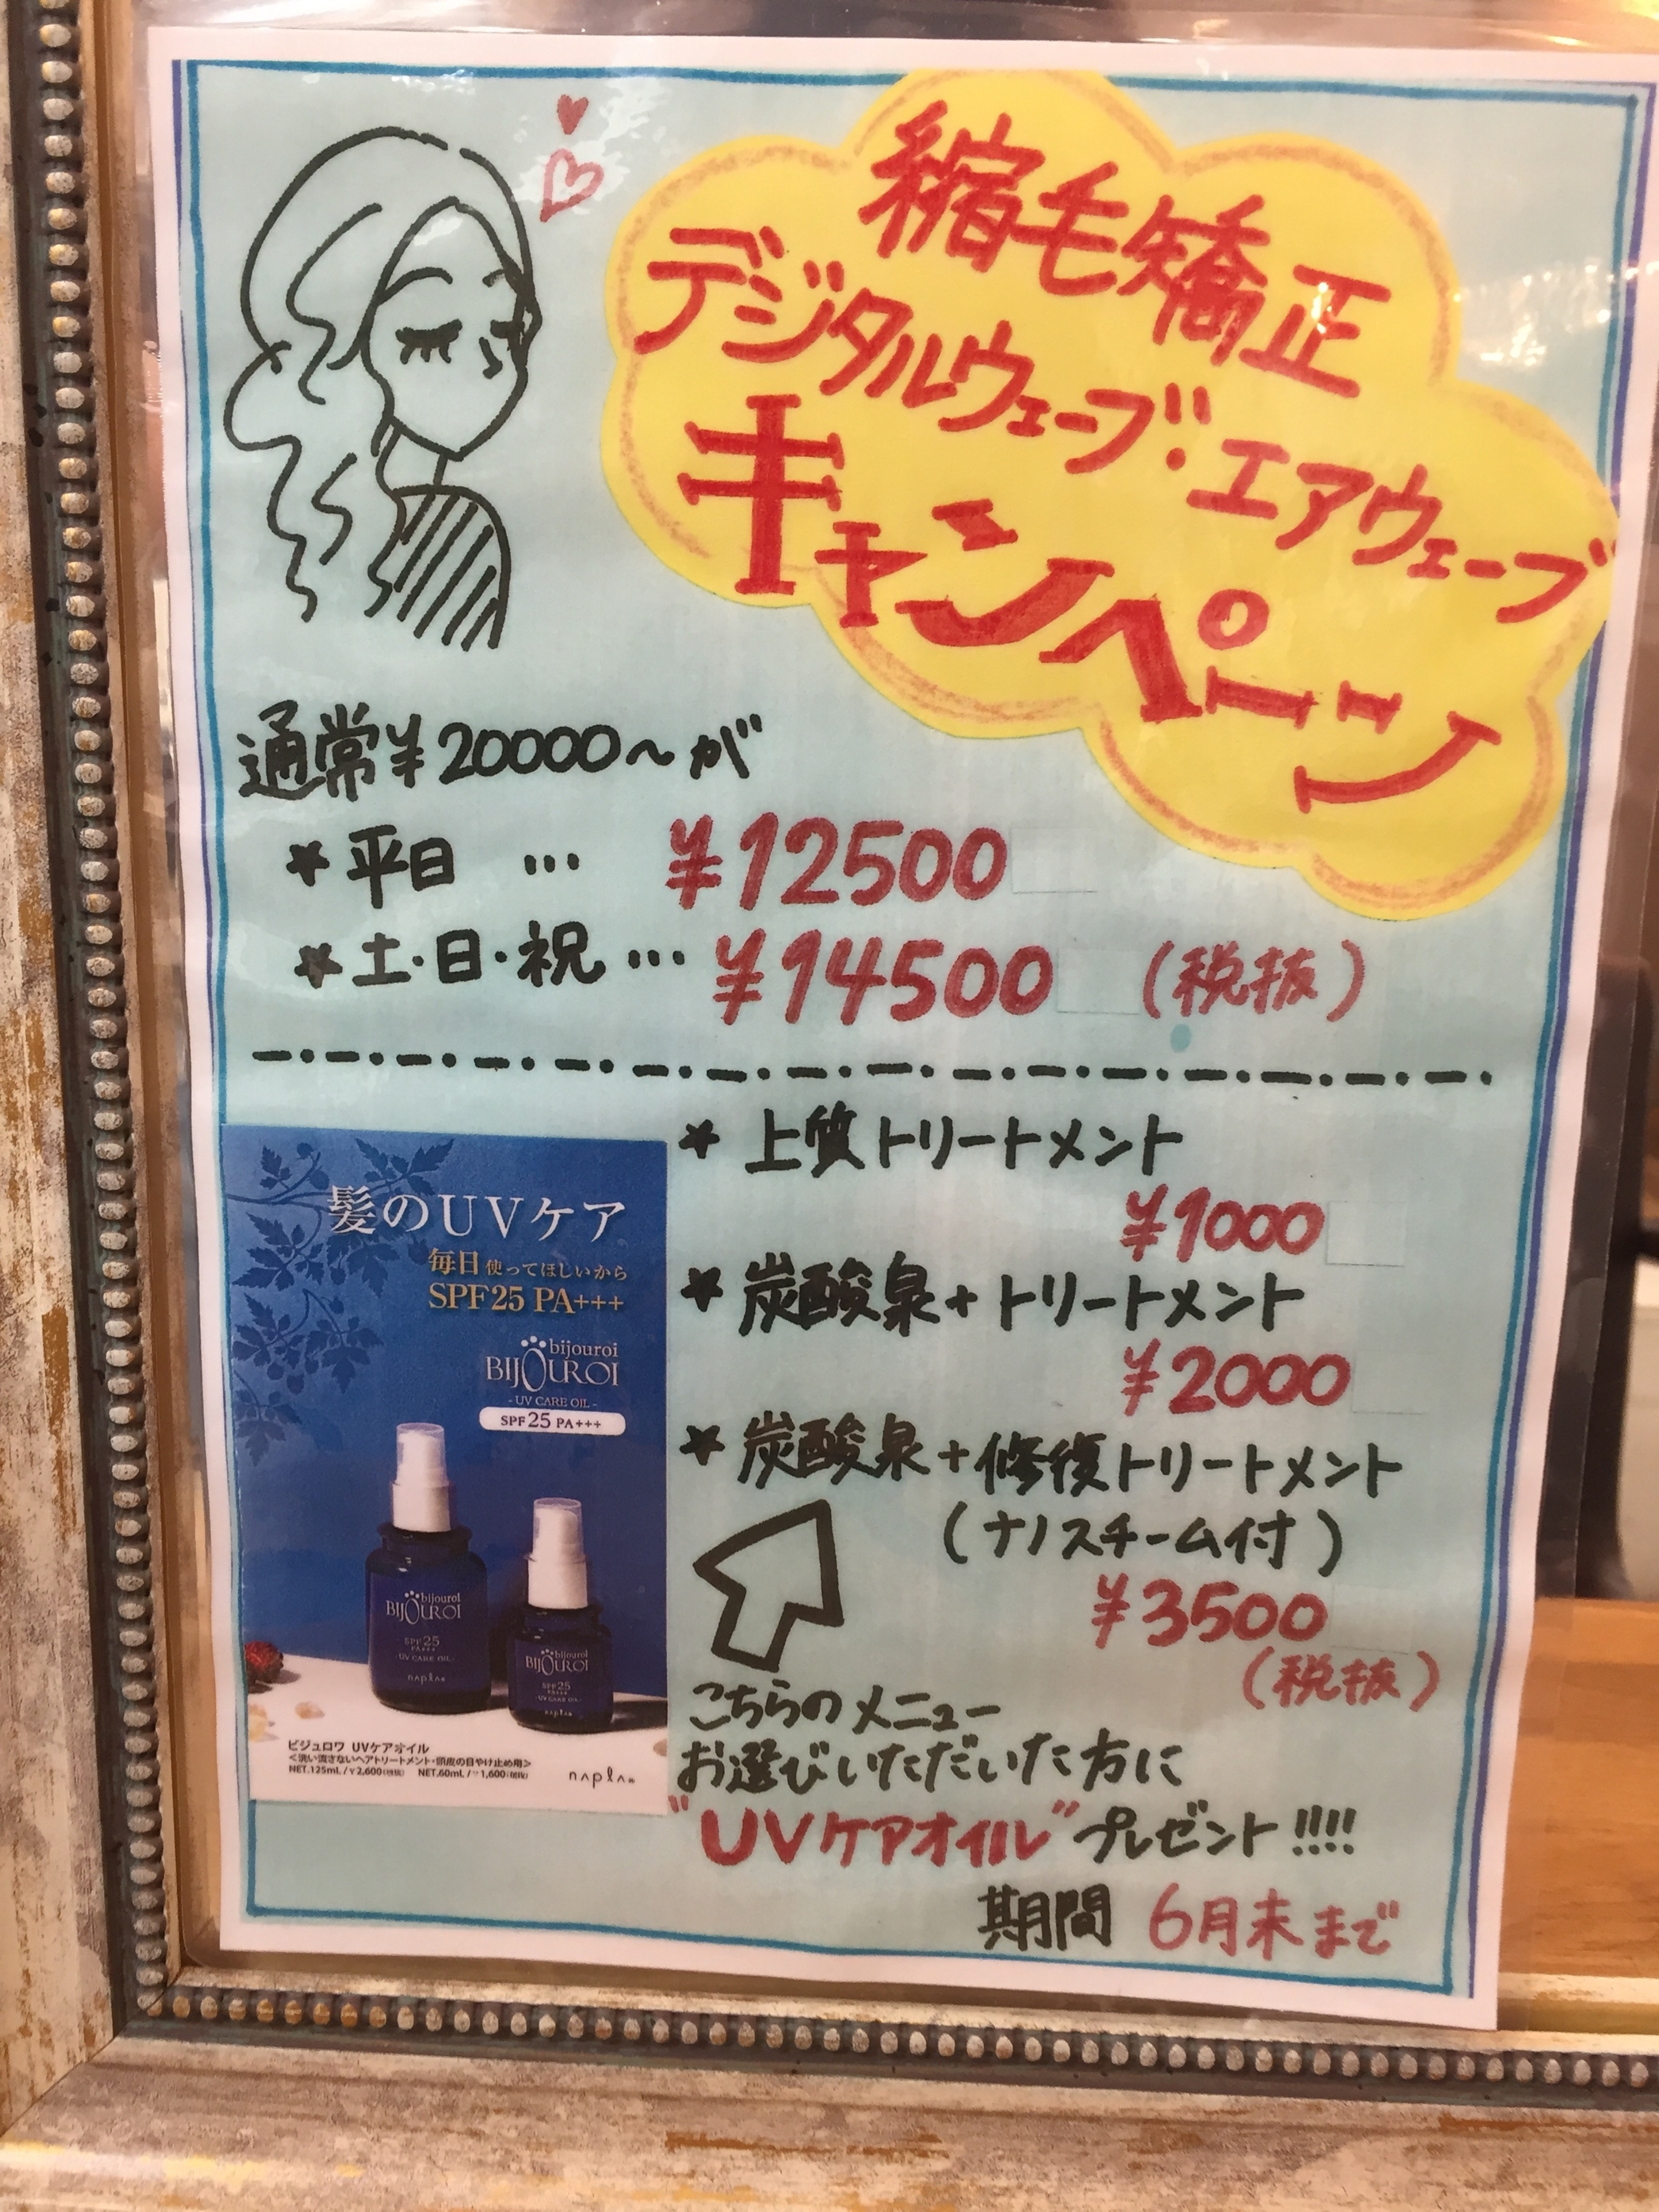 縮毛矯正
デジタルウェーブ・エアウェーブ
キャンペーン
通常¥20000〜が
★平日 … ¥12500
★土・日・祝 … ¥14500 (税抜)
★上質トリートメント
¥1000
★炭酸泉+トリートメント
¥2000
★炭酸泉+修復トリートメント
(ナノスチーム付)
¥3500
(税抜)
こちらのメニュー
お選びいただいた方に
"UVケアオイル"プレゼント!!!!
期間 6月末まで
髪のUVケア
毎日使ってほしいから
SPF25 PA+++
bijouroi
BIJOUROI
- UV CARE OIL -
SPF25 PA+++
bijouroi
BIJOUROI
SPF25
PA+++
UV CARE OIL
napla
bijouroi
BIJOUROI
SPF25
PA+++
UV CARE OIL
napla
ビジュロワ UVケアオイル
<洗い流さないヘアトリートメント・頭皮の日やけ止め用>
NET.125mL/¥2,600(税抜) NET.60mL/¥1,600(税抜)
napla